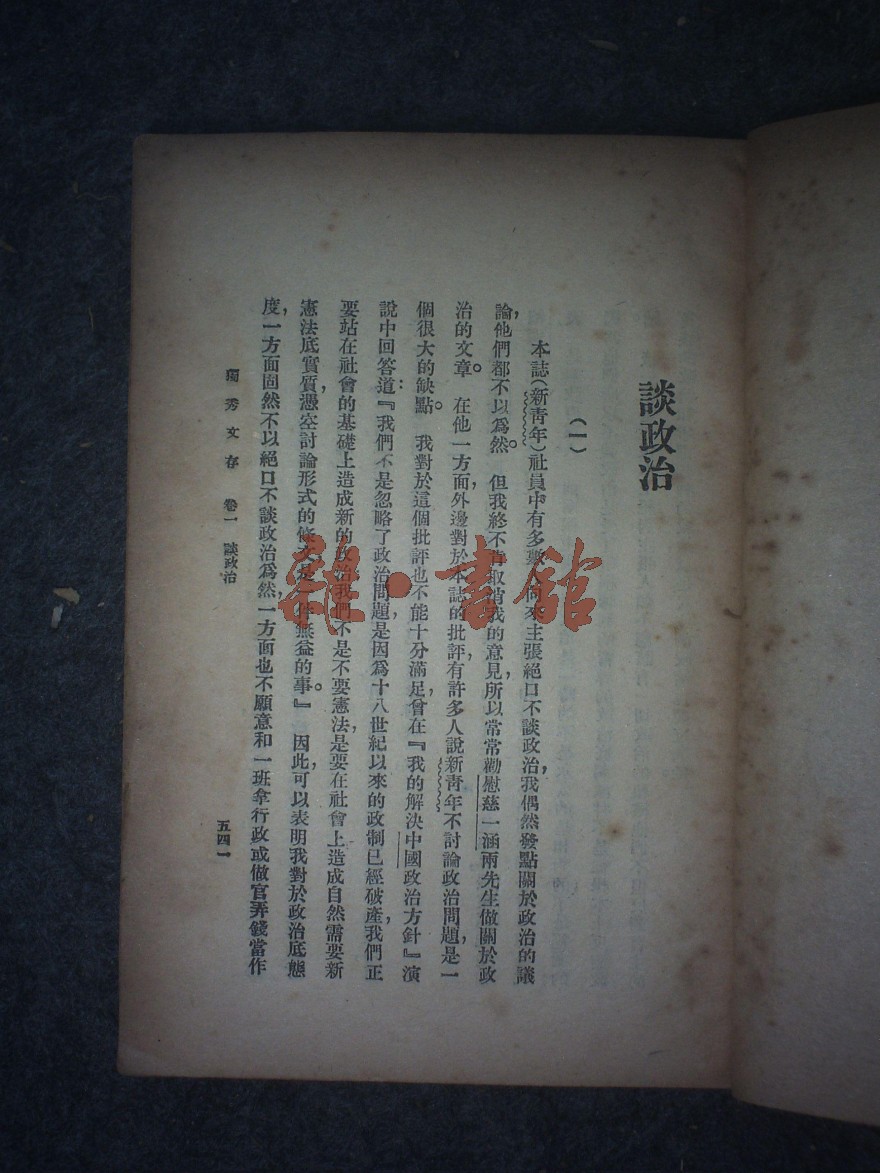 談政治
(一)
本誌(新靑年)社員中有多數人向來主張絕口不談政治,我偶然發點關於政治的議
論,他們都不以爲然。但我終不肯取消我的意見,所以常常勸慰慈一涵兩先生做關於政
治的文章。在他一方面,外邊對於本誌的批評,有許多人說新靑年不討論政治問題,是一
個很大的缺點。我對於這個批評也不能十分滿足,曾在『我的解決中國政治方針』演
說中回答道:『我們不是忽略了政治問題,是因爲十八世紀以來的政制已經破產,我們正
要站在社會的基礎上造成新的政治;我們不是不要憲法,是要在社會上造成自然需要新
憲法底實質,憑空討論形式的條文,是一件無益的事。』因此,可以表明我對於政治底態
度,一方面固然不以絕口不談政治爲然,一方面也不願意和一班拿行政或做官弄錢當作
獨秀文存 卷一 談政治
五四一
雜·書館